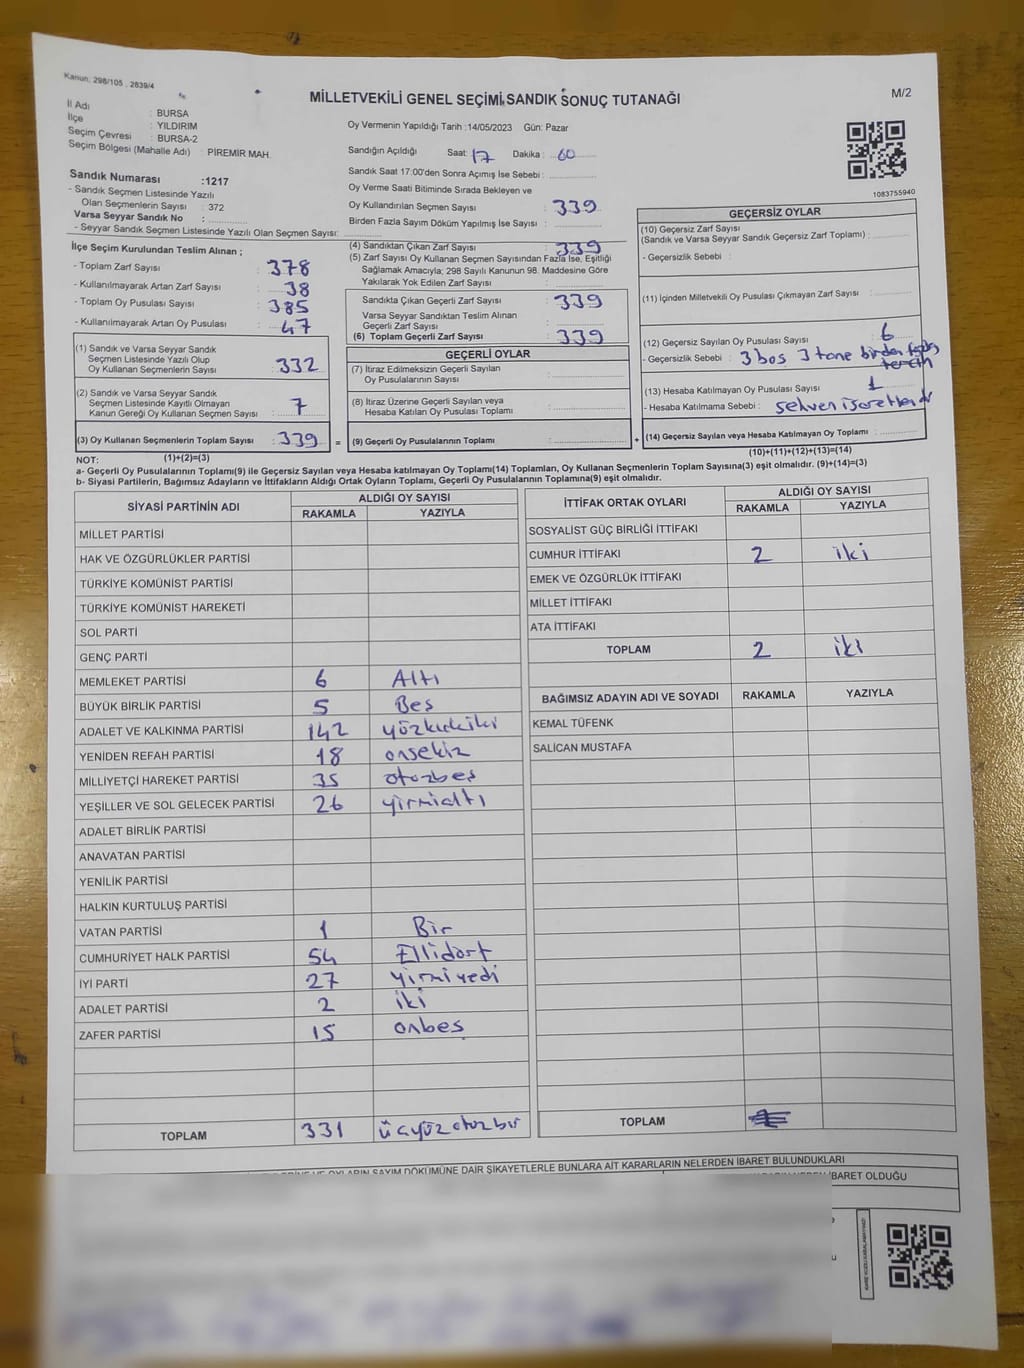 Kanun: 298/105 , 2839/4
MİLLETVEKİLİ GENEL SEÇİMİ SANDIK SONUÇ TUTANAĞI
M/2
İl Adı : BURSA
İlçe : YILDIRIM
Seçim Çevresi : BURSA-2
Seçim Bölgesi (Mahalle Adı) : PİREMİR MAH.
Sandık Numarası :1217
- Sandık Seçmen Listesinde Yazılı
Olan Seçmenlerin Sayısı : 372
Varsa Seyyar Sandık No :
- Seyyar Sandık Seçmen Listesinde Yazılı Olan Seçmen Sayısı:
Oy Vermenin Yapıldığı Tarih :14/05/2023 Gün: Pazar
Sandığın Açıldığı Saat: 17 Dakika : 60
Sandık Saat 17:00'den Sonra Açımış İse Sebebi :
Oy Verme Saati Bitiminde Sırada Bekleyen ve
Oy Kullandırılan Seçmen Sayısı : 339
Birden Fazla Sayım Döküm Yapılmış İse Sayısı :
1083755940
İlçe Seçim Kurulundan Teslim Alınan ;
- Toplam Zarf Sayısı : 378
- Kullanılmayarak Artan Zarf Sayısı : 38
- Toplam Oy Pusulası Sayısı : 385
- Kullanılmayarak Artan Oy Pusulası : 47
(1) Sandık ve Varsa Seyyar Sandık
Seçmen Listesinde Yazılı Olup
Oy Kullanan Seçmenlerin Sayısı : 332
(2) Sandık ve Varsa Seyyar Sandık
Seçmen Listesinde Kayıtlı Olmayan
Kanun Gereği Oy Kullanan Seçmen Sayısı : 7
(3) Oy Kullanan Seçmenlerin Toplam Sayısı : 339 =
(4) Sandıktan Çıkan Zarf Sayısı : 339
(5) Zarf Sayısı Oy Kullanan Seçmen Sayısından Fazla İse, Eşitliği
Sağlamak Amacıyla; 298 Sayılı Kanunun 98. Maddesine Göre
Yakılarak Yok Edilen Zarf Sayısı :
Sandıkta Çıkan Geçerli Zarf Sayısı : 339
Varsa Seyyar Sandıktan Teslim Alınan
Geçerli Zarf Sayısı :
(6) Toplam Geçerli Zarf Sayısı : 339
GEÇERLİ OYLAR
(7) İtiraz Edilmeksizin Geçerli Sayılan
Oy Pusulalarının Sayısı :
(8) İtiraz Üzerine Geçerli Sayılan veya
Hesaba Katılan Oy Pusulası Toplamı :
(9) Geçerli Oy Pusulalarının Toplamı : +
GEÇERSİZ OYLAR
(10) Geçersiz Zarf Sayısı
(Sandık ve Varsa Seyyar Sandık Geçersiz Zarf Toplamı) :
- Geçersizlik Sebebi :
(11) İçinden Milletvekili Oy Pusulası Çıkmayan Zarf Sayısı :
(12) Geçersiz Sayılan Oy Pusulası Sayısı : 6
- Geçersizlik Sebebi : 3 bos 3 tane birden fazla
(13) Hesaba Katılmayan Oy Pusulası Sayısı : 1
- Hesaba Katılmama Sebebi : sehven
(14) Geçersiz Sayılan veya Hesaba Katılmayan Oy Toplamı :
NOT: (1)+(2)=(3)
(10)+(11)+(12)+(13)=(14)
a- Geçerli Oy Pusulalarının Toplamı(9) ile Geçersiz Sayılan veya Hesaba katılmayan Oy Toplamı(14) Toplamları, Oy Kullanan Seçmenlerin Toplam Sayısına(3) eşit olmalıdır. (9)+(14)=(3)
b- Siyasi Partilerin, Bağımsız Adayların ve İttifakların Aldığı Ortak Oyların Toplamı, Geçerli Oy Pusulalarının Toplamına(9) eşit olmalıdır.
SİYASİ PARTİNİN ADI ALDIĞI OY SAYISI
RAKAMLA YAZIYLA
MİLLET PARTİSİ
HAK VE ÖZGÜRLÜKLER PARTİSİ
TÜRKİYE KOMÜNİST PARTİSİ
TÜRKİYE KOMÜNİST HAREKETİ
SOL PARTİ
GENÇ PARTİ
MEMLEKET PARTİSİ 6 Altı
BÜYÜK BİRLİK PARTİSİ 5 Bes
ADALET VE KALKINMA PARTİSİ 142 yözkırkiki
YENİDEN REFAH PARTİSİ 18 onsekiz
MİLLİYETÇİ HAREKET PARTİSİ 35 otuzbeş
YEŞİLLER VE SOL GELECEK PARTİSİ 26 yirmialtı
ADALET BİRLİK PARTİSİ
ANAVATAN PARTİSİ
YENİLİK PARTİSİ
HALKIN KURTULUŞ PARTİSİ
VATAN PARTİSİ 1 Bir
CUMHURİYET HALK PARTİSİ 54 Ellidört
İYİ PARTİ 27 yirmiyedi
ADALET PARTİSİ 2 iki
ZAFER PARTİSİ 15 onbeş
TOPLAM 331 üçyüzotuzbir
İTTİFAK ORTAK OYLARI ALDIĞI OY SAYISI
RAKAMLA YAZIYLA
SOSYALİST GÜÇ BİRLİĞİ İTTİFAKI
CUMHUR İTTİFAKI 2 iki
EMEK VE ÖZGÜRLÜK İTTİFAKI
MİLLET İTTİFAKI
ATA İTTİFAKI
TOPLAM 2 iki
BAĞIMSIZ ADAYIN ADI VE SOYADI RAKAMLA YAZIYLA
KEMAL TÜFENK
SALİCAN MUSTAFA
TOPLAM
OYLARIN SAYIM DÖKÜMÜNE DAİR ŞİKAYETLERLE BUNLARA AİT KARARLARIN NELERDEN İBARET BULUNDUKLARI
İBARET OLDUĞU